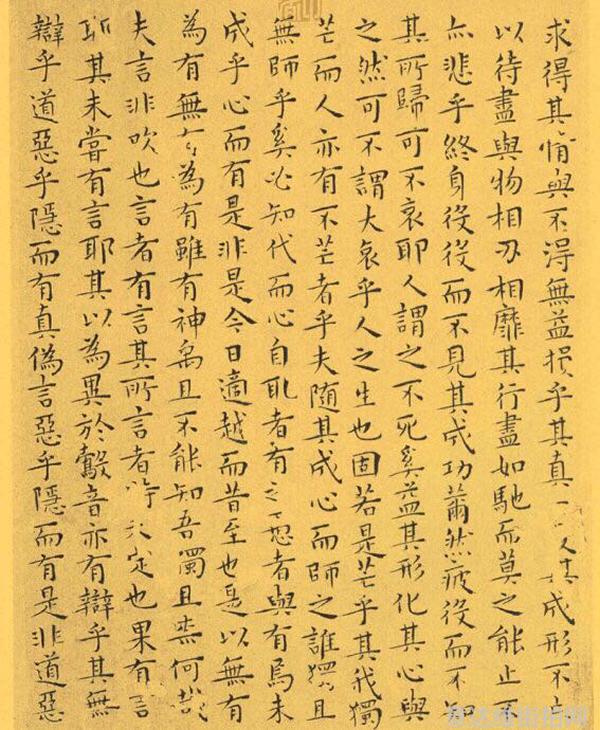 求得其情與不得無益損乎其真一其成形不
以待盡與物相刃相靡其行盡如馳而莫之能止不
亦悲乎終身役役而不見其成功薾然疲役而不知
其所歸可不哀耶人謂之不死奚益其形化其心與
之然可不謂大哀乎人之生也固若是芒乎其我獨
芒而人亦有不芒者乎夫隨其成心而師之誰獨且
無師乎奚必知代而心自取者有之愚者與有焉未
成乎心而有是非是今日適越而昔至也是以無有
為有無〻為有雖有神禹且不能知吾獨且柰何哉
夫言非吹也言者有言其所言者特未定也果有言
耶其未嘗有言耶其以為異於鷇音亦有辯乎其無
辯乎道惡乎隱而有真偽言惡乎隱而有是非道惡